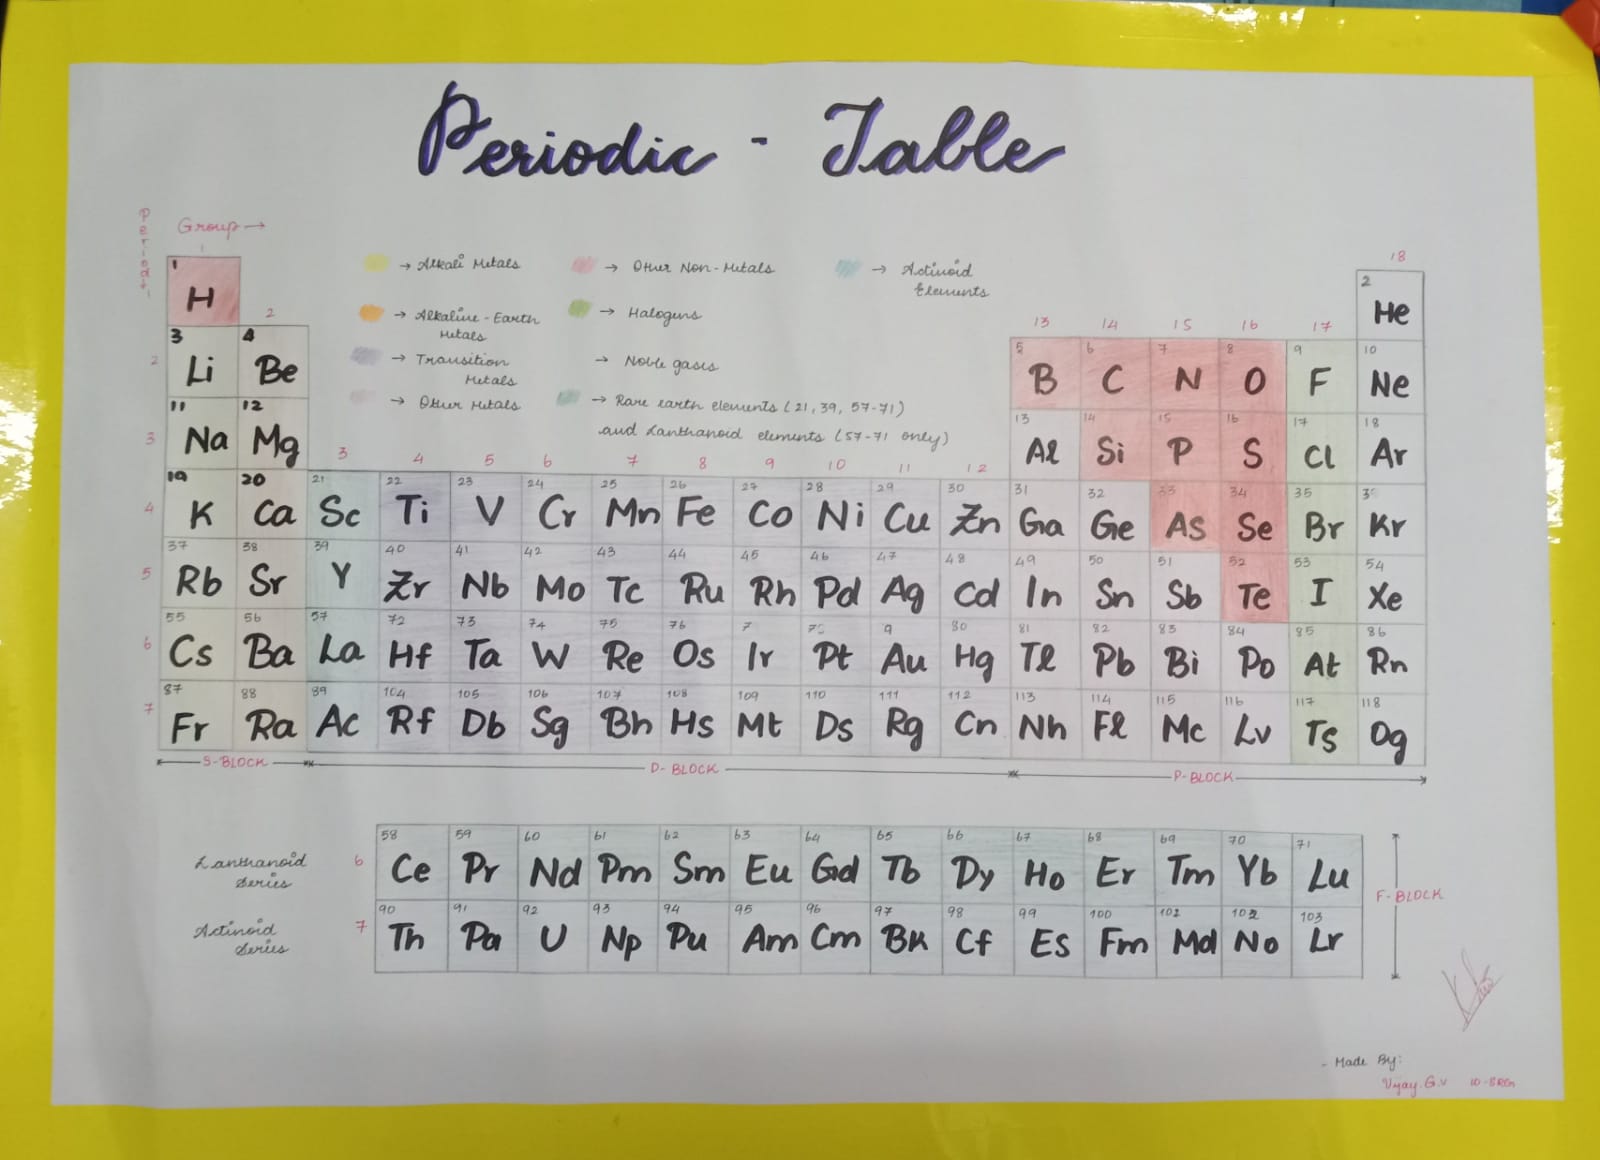 Periodic - Table
Periods
Group →
1
18
1 H
2 He
→ Alkali Metals
→ Other Non-Metals
→ Actinoid
Elements
→ Alkaline-Earth
Metals
→ Halogens
→ Transition
Metals
→ Noble gases
→ Other Metals
→ Rare earth elements (21, 39, 57-71)
and Lanthanoid elements (57-71 only)
2
13 14 15 16 17
2 3 Li 4 Be 5 B 6 C 7 N 8 O 9 F 10 Ne
3 11 Na 12 Mg 13 Al 14 Si 15 P 16 S 17 Cl 18 Ar
3 4 5 6 7 8 9 10 11 12
4 19 K 20 Ca 21 Sc 22 Ti 23 V 24 Cr 25 Mn 26 Fe 27 Co 28 Ni 29 Cu 30 Zn 31 Ga 32 Ge 33 As 34 Se 35 Br Kr
5 37 Rb 38 Sr 39 Y 40 Zr 41 Nb 42 Mo 43 Tc 44 Ru 45 Rh 46 Pd 47 Ag 48 Cd 49 In 50 Sn 51 Sb 52 Te 53 I 54 Xe
6 55 Cs 56 Ba 57 La 72 Hf 73 Ta 74 W 75 Re 76 Os Ir Pt Au 80 Hg 81 Tl 82 Pb 83 Bi 84 Po 85 At 86 Rn
7 87 Fr 88 Ra 89 Ac 104 Rf 105 Db 106 Sg 107 Bh 108 Hs 109 Mt 110 Ds 111 Rg 112 Cn 113 Nh 114 Fl 115 Mc 116 Lv 117 Ts 118 Og
S-BLOCK D-BLOCK P-BLOCK
Lanthanoid
Series
6 58 Ce 59 Pr 60 Nd 61 Pm 62 Sm 63 Eu 64 Gd 65 Tb 66 Dy 67 Ho 68 Er 69 Tm 70 Yb 71 Lu
F-BLOCK
Actinoid
Series
7 90 Th 91 Pa 92 U 93 Np 94 Pu 95 Am 96 Cm 97 BK 98 Cf 99 Es 100 Fm Md 102 No 103 Lr
- Made By:
Vijay.G.V